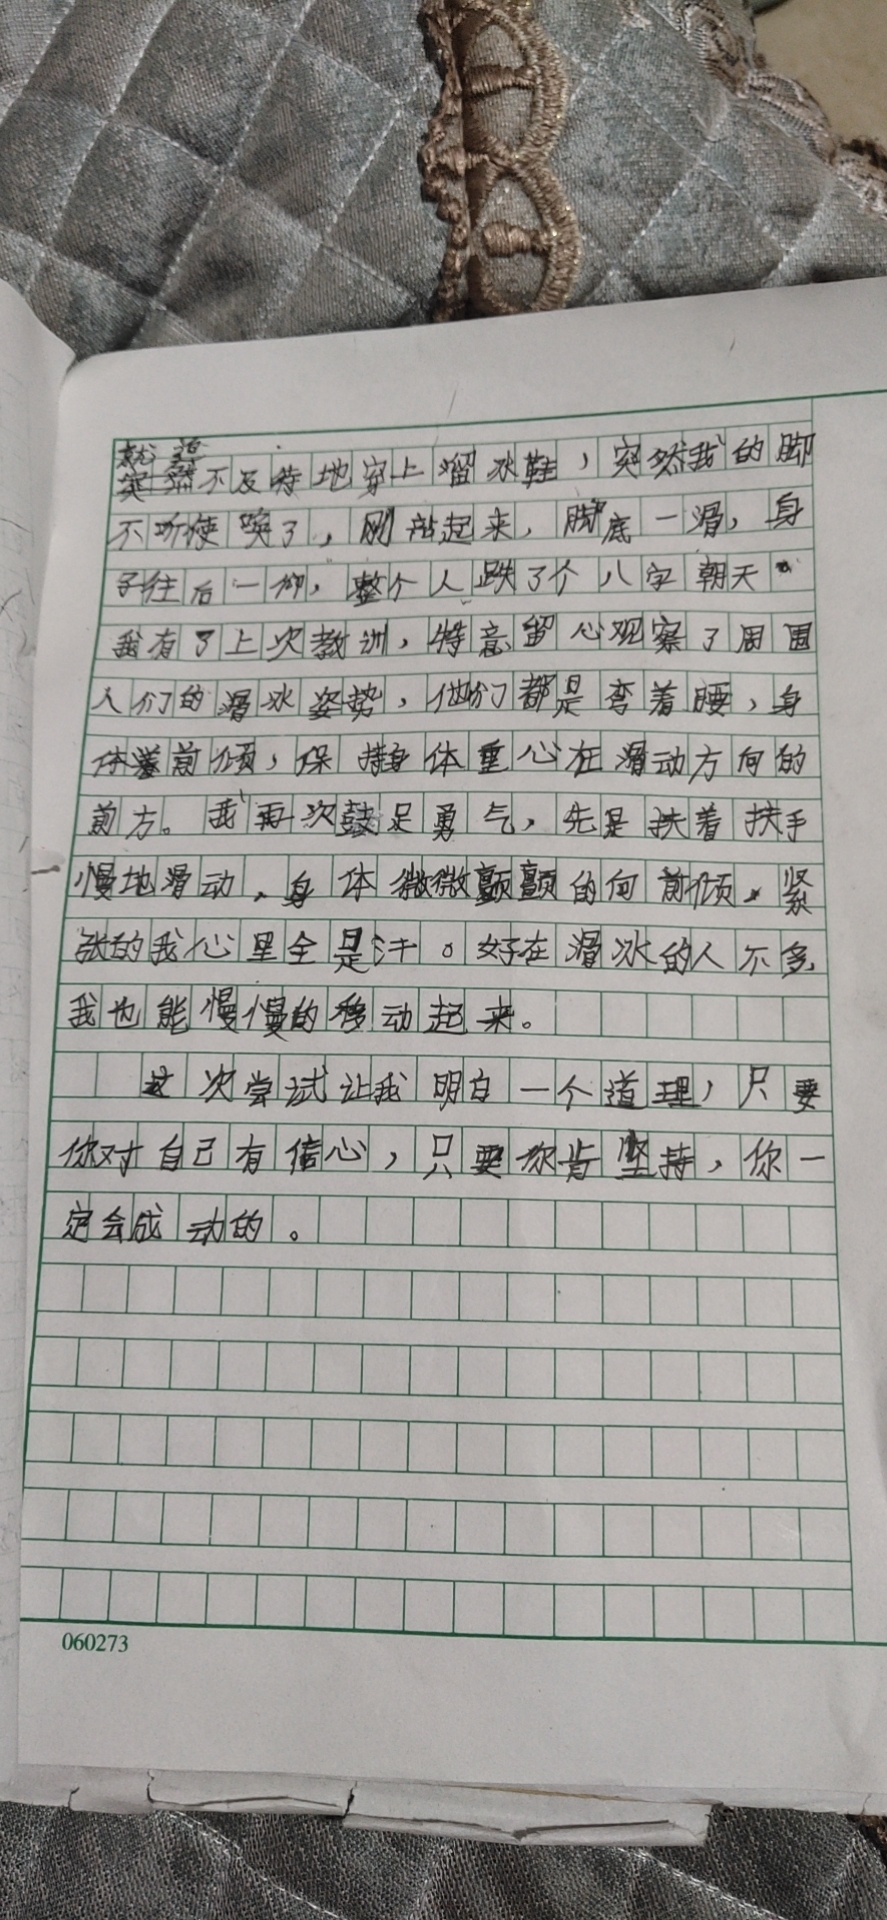 就迫
不及待地穿上溜冰鞋，突然我的脚
不听使唤了，刚站起来，脚底一滑，身
子往后一仰，整个人跌了个八字朝天
我有了上次教训，特意留心观察了周围
人们的滑冰姿势，他们都是弯着腰，身
体前倾，保持身体重心在滑动方向的
前方。我再次鼓足勇气，先是扶着扶手
慢地滑动，身体微微颤颤的向前倾，紧
张的我心里全是汗。好在滑冰的人不多，
我也能慢慢的移动起来。
这次尝试让我明白一个道理，只要
你对自己有信心，只要你肯坚持，你一
定会成动的。
060273